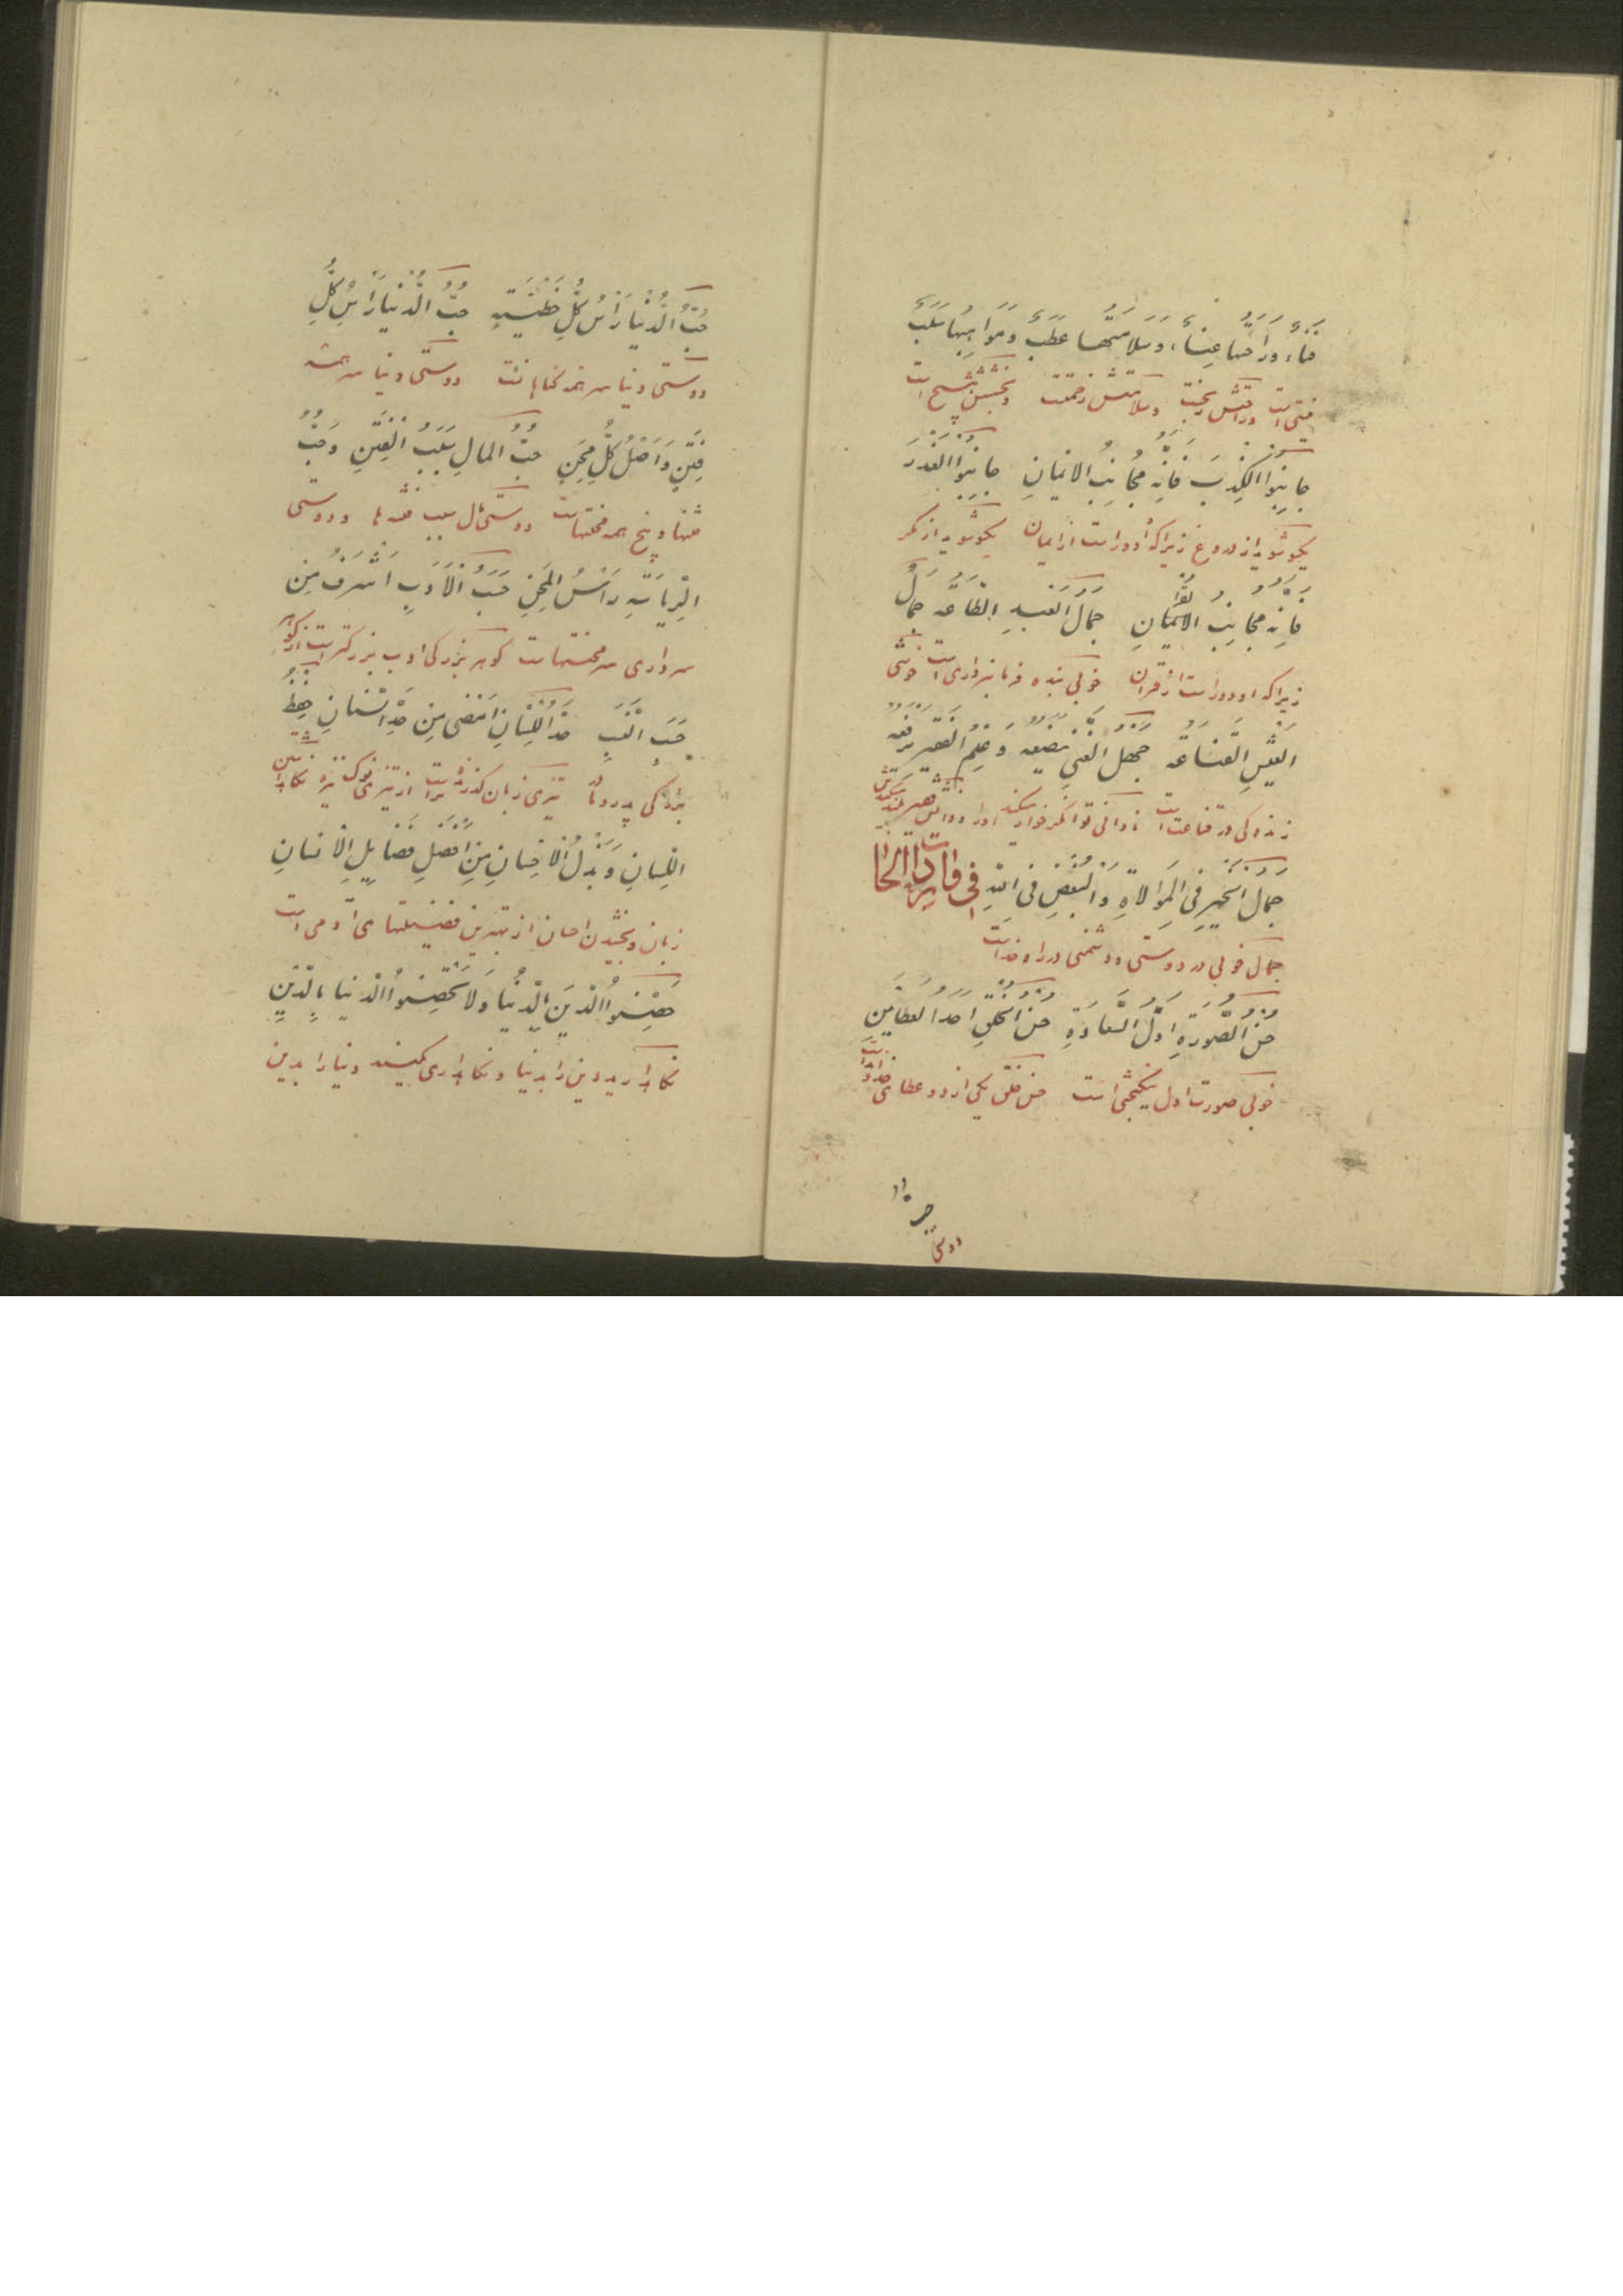 فَنَاءٌ وَرَاحَتُهَا عَنَاءٌ وَسَلَامَتُهَا عَطَبٌ وَمَوَاهِبُهَا سَلَبٌ
است وراحتش وسلامتش زحمتست
جَانِبُوا الْكِذْبَ فَاِنَّهُ مُجَانِبُ الْاِيْمَانِ جَانِبُوا الْغَدْرَ
یکسو شوید از دروغ زیراکه او دور است از ایمان یکسو شوید از مکر
فَاِنَّهُ مُجَانِبُ جَمَالُ الْعَبْدِ الطَّاعَةُ جَمَالُ
زیراکه او دور است از قرآن خوبی بنده فرمانبرداری است خوشی
الْعَيْشِ الْقَنَاعَةُ جَهْلُ الْغَنِيِّ يَضَعُهُ وَعِلْمُ الْفَقِيرِ يَرْفَعُهُ
زندکی در قناعت است نادانی توانکر خوار میکند او را
جَمَالُ الْخَيْرِ فِي الْمُوَالَاةِ وَالْبُغْضِ فِي اللّٰهِ فی الحا
جمال خوبی در دوستی ودشمنی در راه خداست
حُسْنُ الصُّورَةِ اَوَّلُ السَّعَادَةِ حُسْنُ الْخُلْقِ اَحَدُ الْعَطَائَيْنِ
خوبی صورت اول نیکبختی است حسن خلق یکی از دو عطای
دوستی
حُبُّ الدُّنْيَا رَأْسُ كُلِّ خَطِيئَةٍ حُبُّ الدُّنْيَا رَأْسُ كُلِّ
دوستی دنیا سر همه کناهانست دوستی دنیا سر همه
فِتَنٍ وَاَصْلُ كُلِّ مِحَنٍ حُبُّ الْمَالِ سَبَبُ الْفِتَنِ وَحُبُّ
فتنها وبیخ همه محنتهاست دوستی مال سبب فتنه ها ودوستی
الرِّيَاسَةِ رَأْسُ الْمِحَنِ حَسَبُ الْاَدَبِ اَشْرَفُ مِنْ
سرداری سر محنتهاست کوهر بزرکی ادب بزرکتر است از کوهر
حَسَبِ النَّسَبِ حَدُّ اللِّسَانِ اَمْضَى مِنْ حَدِّ السِّنَانِ حِفْظُ
بزرکی تیزی زبان کذرنده تر است از تیزی نوک نیزه نکاه داشتن
اللِّسَانِ وَبَذْلُ الْاِحْسَانِ مِنْ اَفْضَلِ فَضَايِلِ الْاِنْسَانِ
زبان وبخشیدن احسان از بهترین فضیلتهای آدمی است
حَصِّنُوا الدِّينَ بِالدُّنْيَا وَلَا تُحَصِّنُوا الدُّنْيَا بِالدِّينِ
نکاه دارید دین را بدنیا ونکاه داری مکنید دنیا را بدین